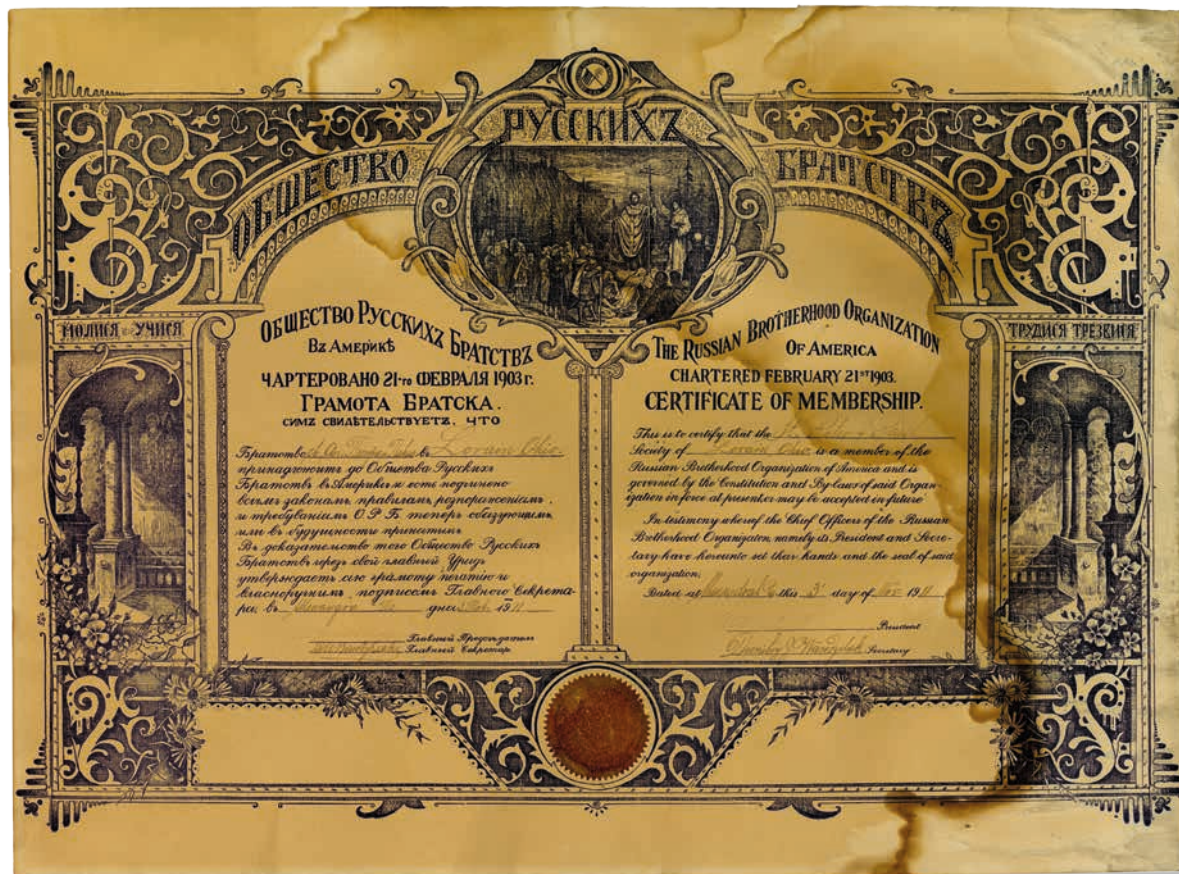 ОБЩЕСТВО РУССКИХЪ БРАТСТВЪ
МОЛИСЯ УЧИСЯ
ОБЩЕСТВО РУССКИХЪ БРАТСТВЪ
ВЪ АМЕРИКѢ
ЧАРТЕРОВАНО 21-го ФЕВРАЛЯ 1903 г.
ГРАМОТА БРАТСКА.
СИМЪ СВИДѢТЕЛЬСТВУЕТЪ, ЧТО
Братство въ Lorain Ohio
принадлежитъ до Общества Русскихъ
Братствъ въ Америкѣ и есть подчинено
всѣмъ законамъ, правиламъ, розпоряженіямъ,
и требуваніямъ О.Р.Б. теперь обовязующимъ
или въ будущности принятымъ
Въ доказательство того Общество Русскихъ
Братствъ черезъ свой главный Урядъ
утверждаетъ сію грамоту печатію и
власноручнимъ подписомъ Главного Секрета-
ря, въ дня 1911
Главный Предсѣдатель
Главный Секретарь
THE RUSSIAN BROTHERHOOD ORGANIZATION
OF AMERICA
CHARTERED FEBRUARY 21ST 1903.
CERTIFICATE OF MEMBERSHIP.
This is to certify that the
Society of Lorain Ohio is a member of the
Russian Brotherhood Organization of America and is
governed by the Constitution and By-laws of said Organ-
ization in force at present or may be accepted in future
In testimony whereof the Chief Officers of the Russian
Brotherhood Organization, namely its President and Secre-
tary have hereunto set their hands and the seal of said
organization.
Dated at this 3 day of Nov 1911
President
Secretary
ТРУДИСЯ ТРЕЗВИСЯ